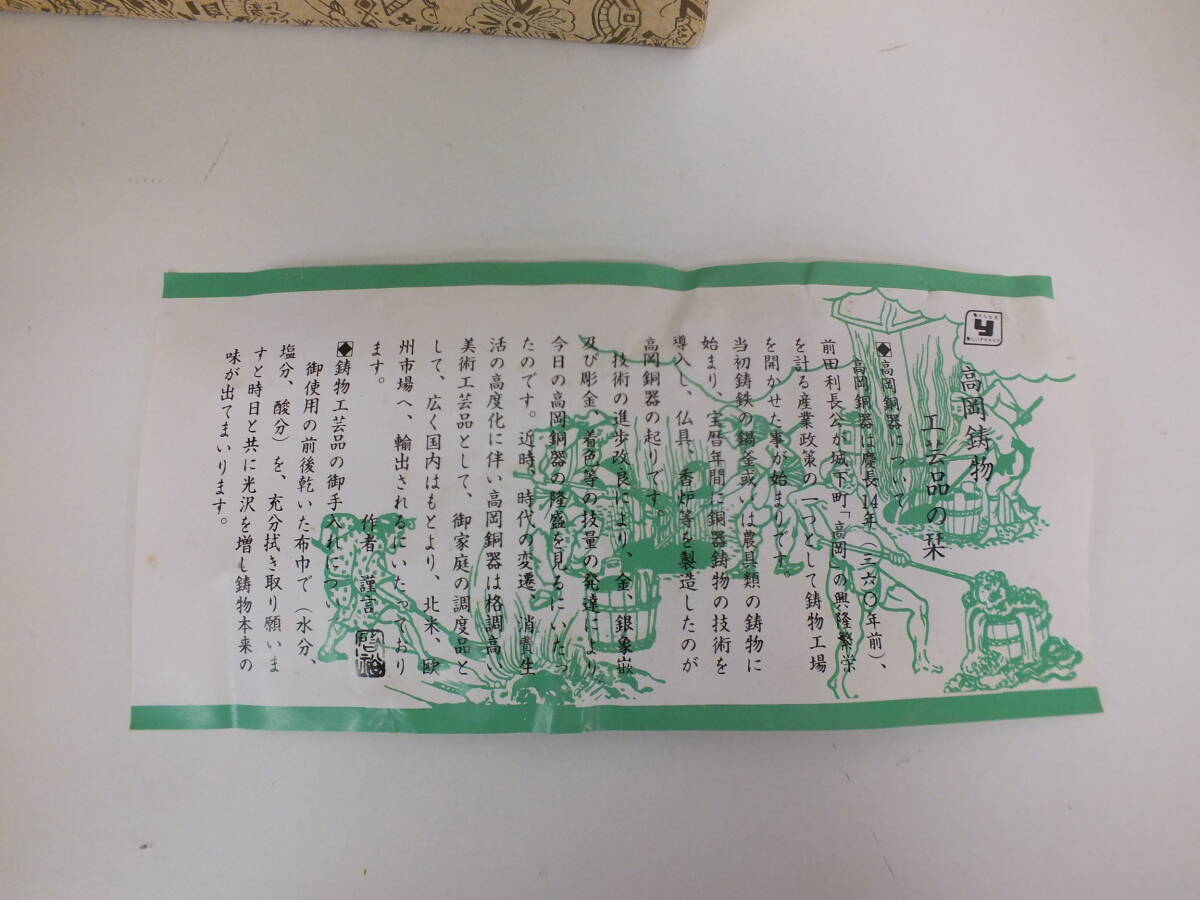 高岡鋳物
工芸品の栞
◆高岡銅器について
高岡銅器は慶長14年(三六〇年前)、
前田利長公が城下町「高岡」の興隆繁栄
を計る産業政策の一つとして鋳物工場
を開かせた事が始まりです。
当初鋳鉄の鍋釜或いは農具類の鋳物に
始まり、宝暦年間に銅器鋳物の技術を
導入し、仏具、香炉等を製造したのが
高岡銅器の起りです。
技術の進歩改良により、金、銀象嵌
及び彫金、着色等の技量の発達により
今日の高岡銅器の隆盛を見るにいたっ
たのです。近時、時代の変遷、消費生
活の高度化に伴い高岡銅器は格調高い
美術工芸品として、御家庭の調度品と
して、広く国内はもとより、北米、欧
州市場へ、輸出されるにいたっており
ます。
作者 謹言
◆鋳物工芸品の御手入れについ
御使用の前後乾いた布巾で(水分、
塩分、酸分)を、充分拭き取り願いま
すと時日と共に光沢を増し鋳物本来の
味が出てまいります。